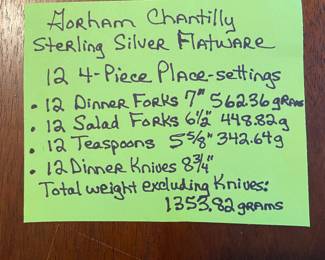 Gorham Chantilly
Sterling Silver Flatware
12 4-Piece Place-settings
• 12 Dinner Forks 7" 562.36 grams
• 12 Salad Forks 6½" 448.82g
• 12 Teaspoons 5⅝" 342.64g
• 12 Dinner Knives 8¾"
Total weight excluding Knives:
1353.82 grams